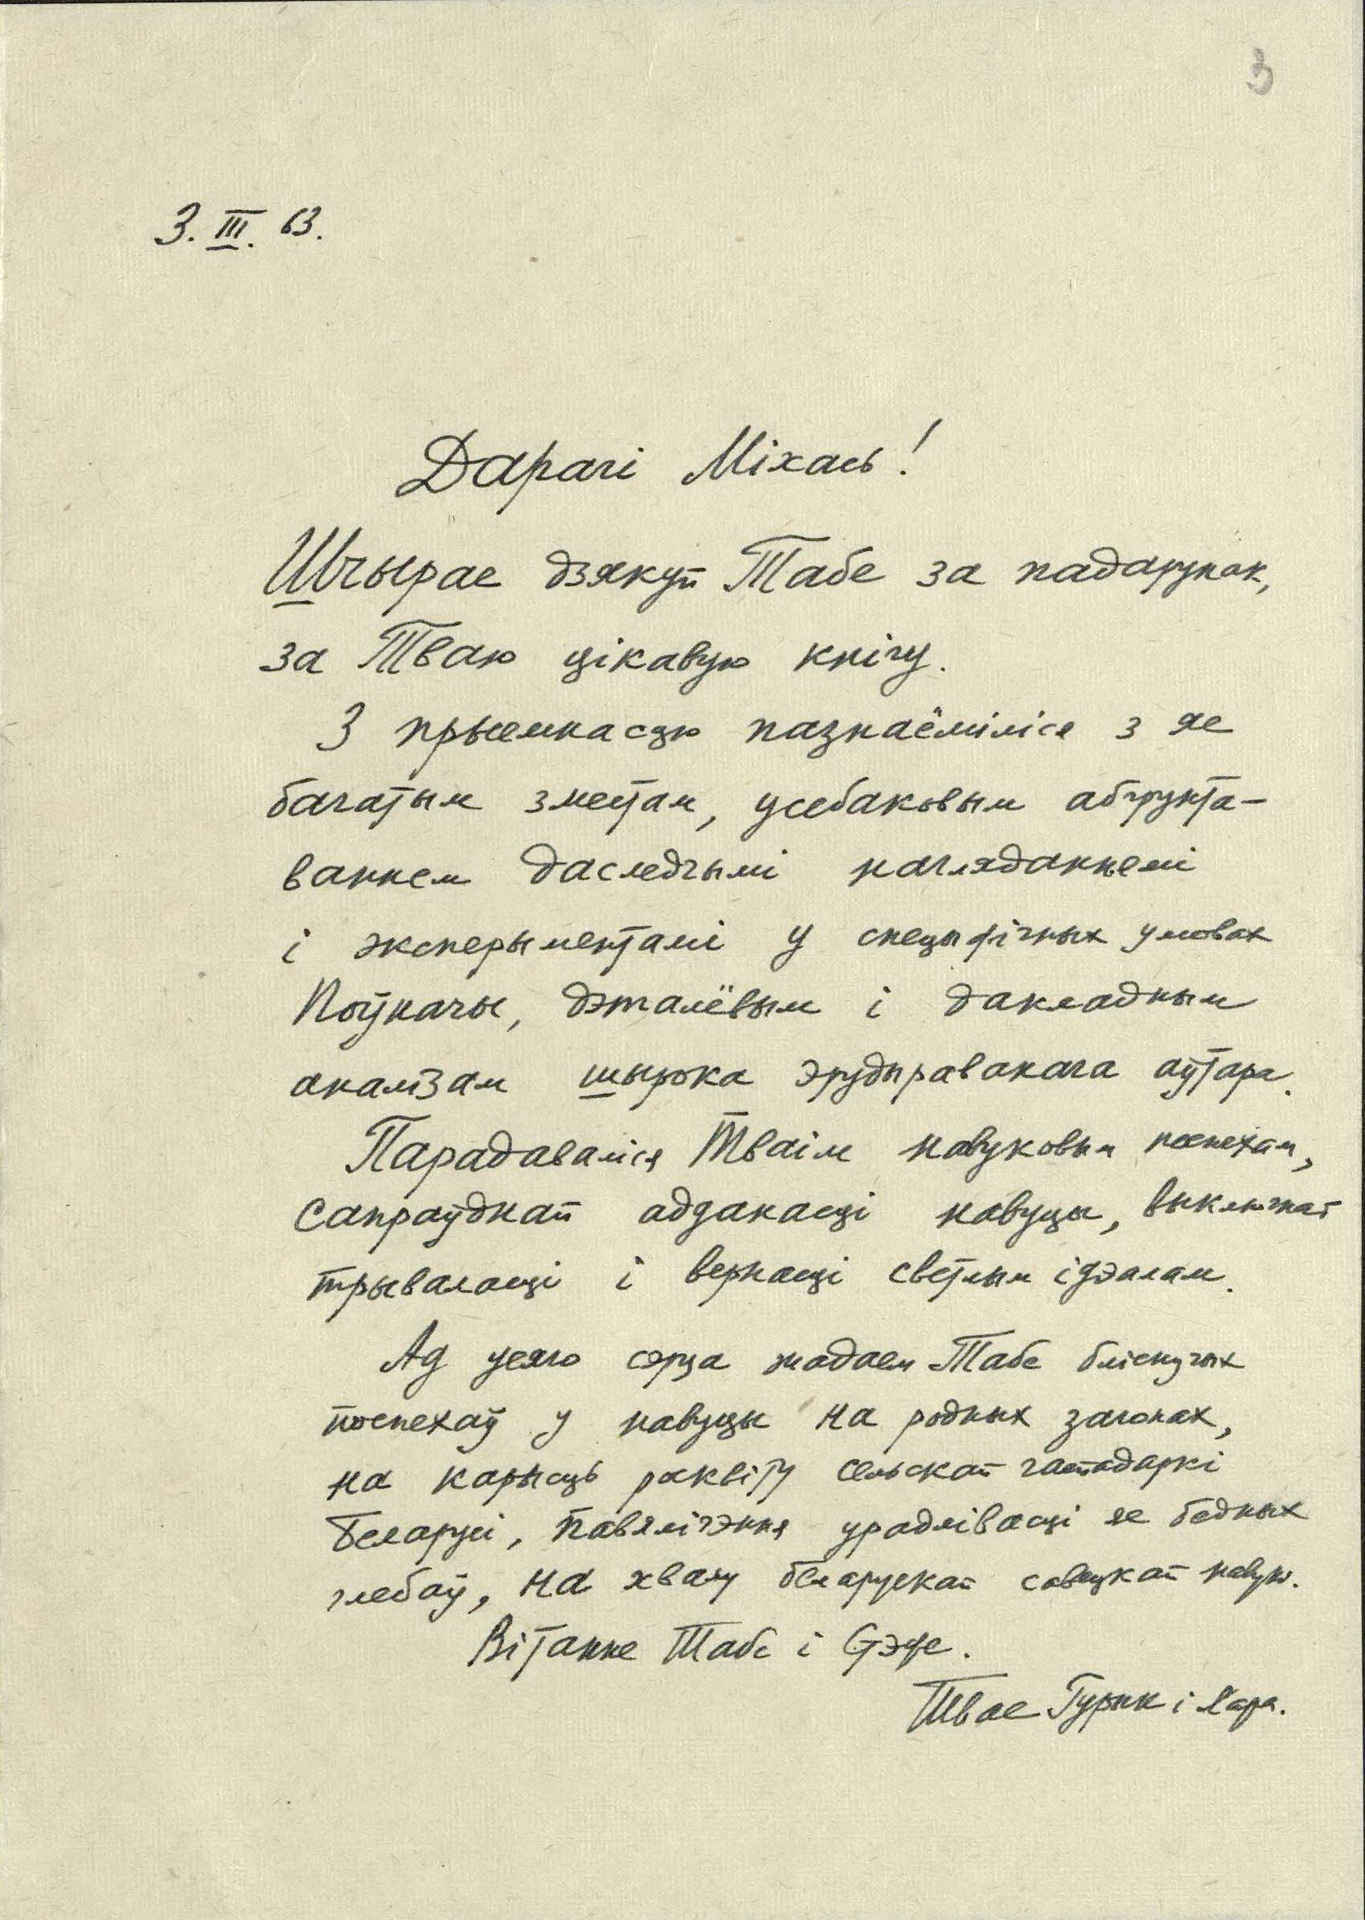 3
3. III. 63.
Дарагі Міхась!
Шчырае дзякуй Табе за падарунак,
за Тваю цікавую кнігу.
З прыемнасцю пазнаёміліся з яе
багатым зместам, усебаковым абгрунта-
ваннем даследчымі наглядannямі
і эксперыментамі у спецыфічных умовах
Поўначы, дэталёвым і дакладным
аналізам шырока эрудыраванага аўтара.
Парадаваліся Тваім навуковым поспехам,
сапраўднай адданасці навуцы, выключнай
трываласці і вернасці светлым ідэалам.
Ад усяго сэрца жадаем Табе бліскучых
поспехаў у навуцы на родных загонах,
на карысць росквіту сельскай гаспадаркі
Беларусі, павялічэння урадлівасці яе бедных
глебаў, на хвалу беларускай савецкай навук.
Вітанне Табе і
Твае Гурык і